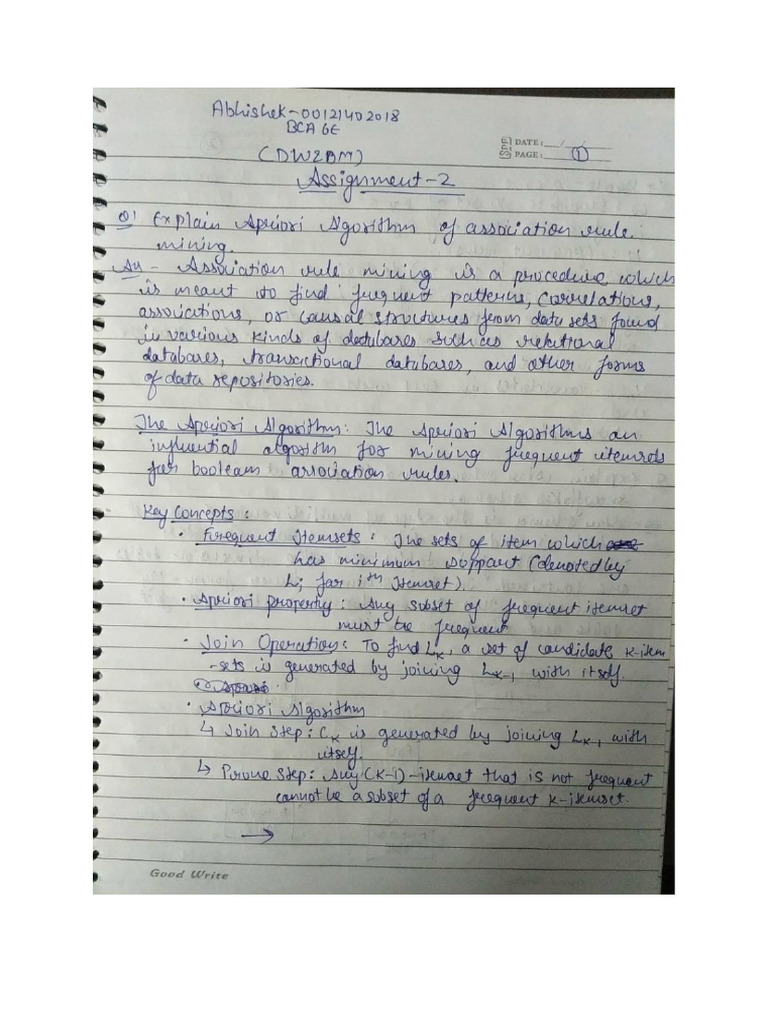 Abhishek-00121402018
BCA 6E
(DW2DM)
DATE: __/__/__
PAGE: 1
Assignment-2
Q1 Explain Apriori Algorithm of association rule
mining.
An - Association rule mining is a procedure which
is meant to find frequent patterns, correlations,
associations, or causal structures from data sets found
in various kinds of databases such as relational
databases, transactional databases, and other forms
of data repositories.
The Apriori Algorithm: The Apriori Algorithms an
influential algorithm for mining frequent itemsets
for boolean association rules.
Key Concepts:
• Frequent Itemsets: The sets of item which
has minimum support (denoted by
Li for ith Itemset).
• Apriori property: Any subset of frequent itemset
must be frequent
• Join Operation: To find Lk, a set of candidate k-item
-sets is generated by joining Lk-1 with itself.
• Apriori Algorithm
↳ Join Step: Ck is generated by joining Lk-1 with
itself.
↳ Prune Step: Any (k-1)-itemset that is not frequent
cannot be a subset of a frequent k-itemset.
→
Good Write